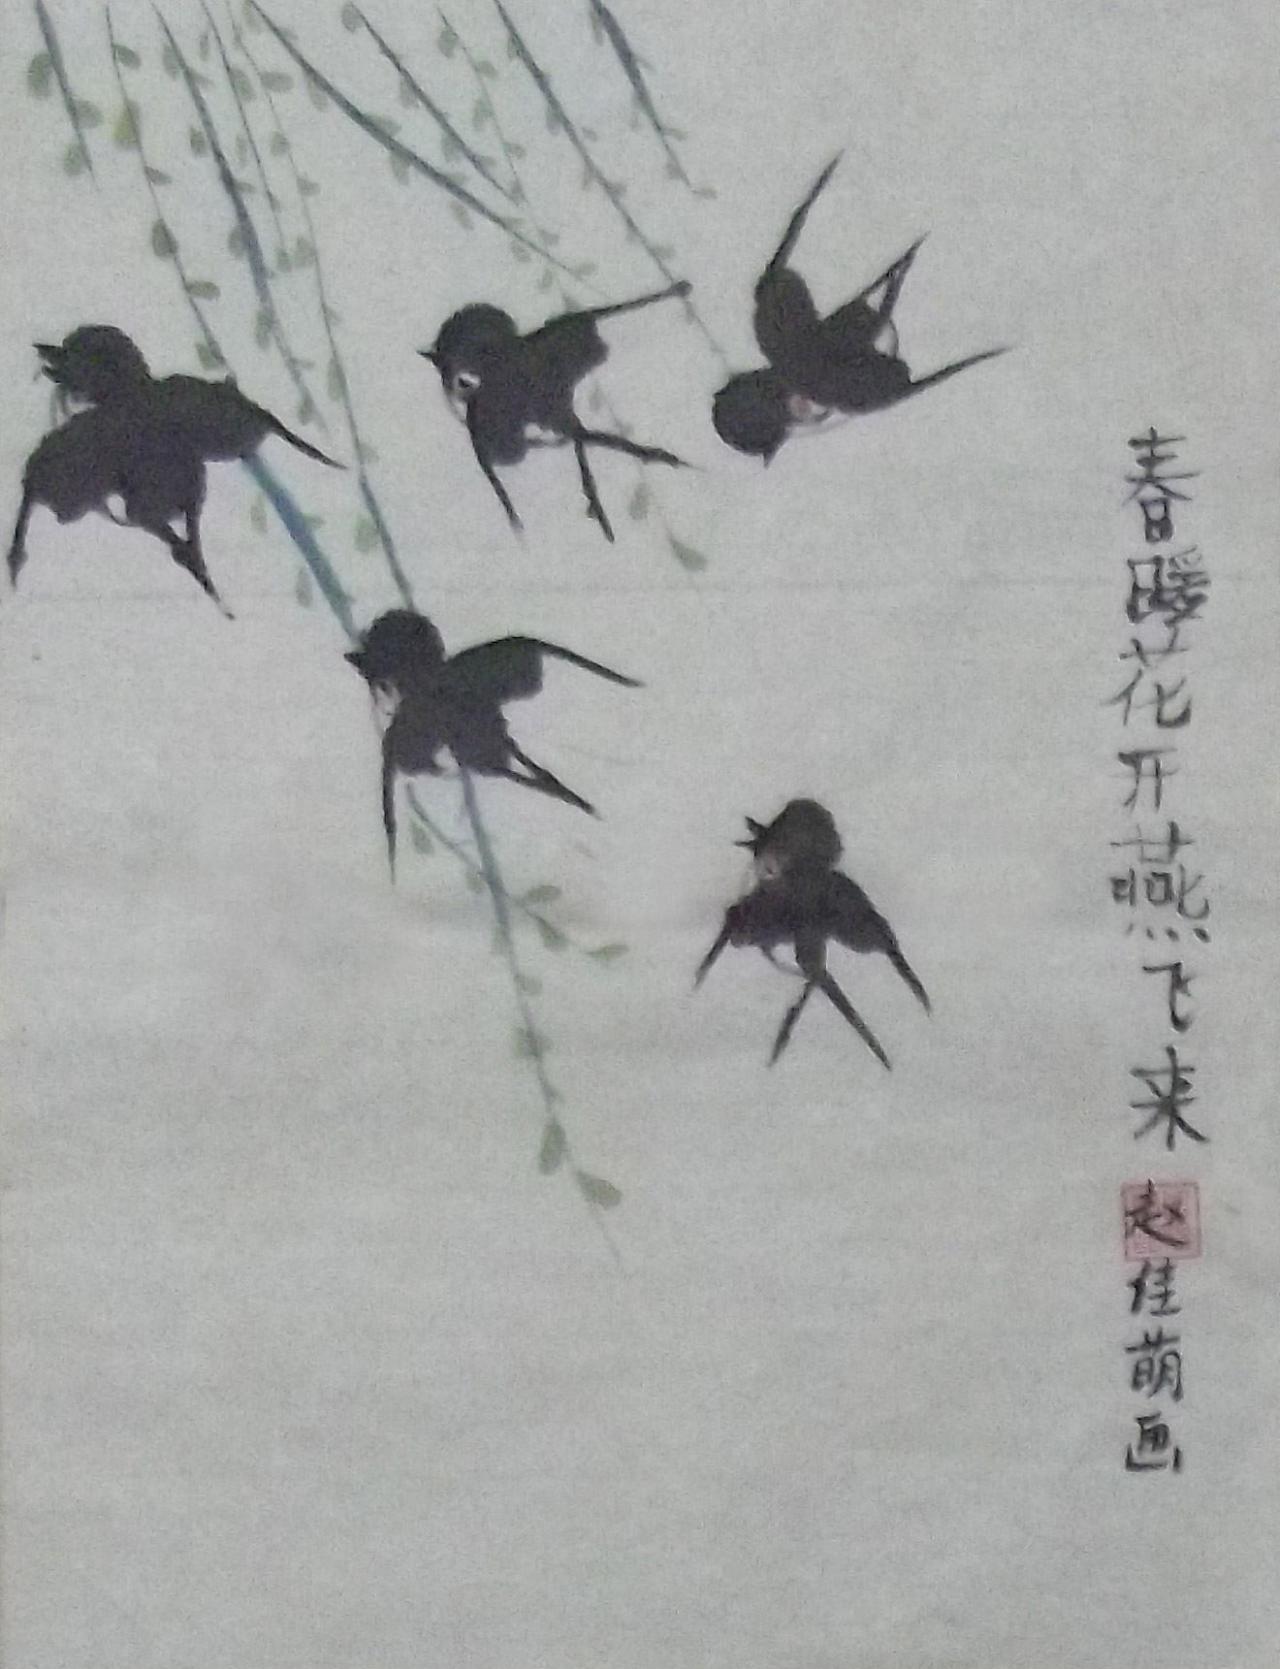 春暖花开燕飞来
赵佳萌画